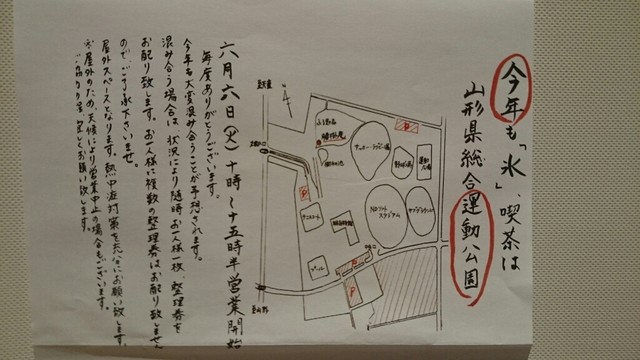 今年も「氷」、喫茶は
山形県総合運動公園
至天童
N
P
P
P
P
NDソフト
スタジアム
至山形
六月六日（火）十時～十五時半営業開始
毎度ありがとうございます。
今年も大変混み合うことが予想されます。
混み合う場合は、状況により随時、お一人様一枚、整理券を
お配り致します。お一人様に複数の整理券はお配り致しません
のでご了承下さいませ。
屋外スペースとなります。熱中症対策を充分にお願い致します。
※屋外のため、天候により営業中止の場合もございます。
宜しくお願い致します。